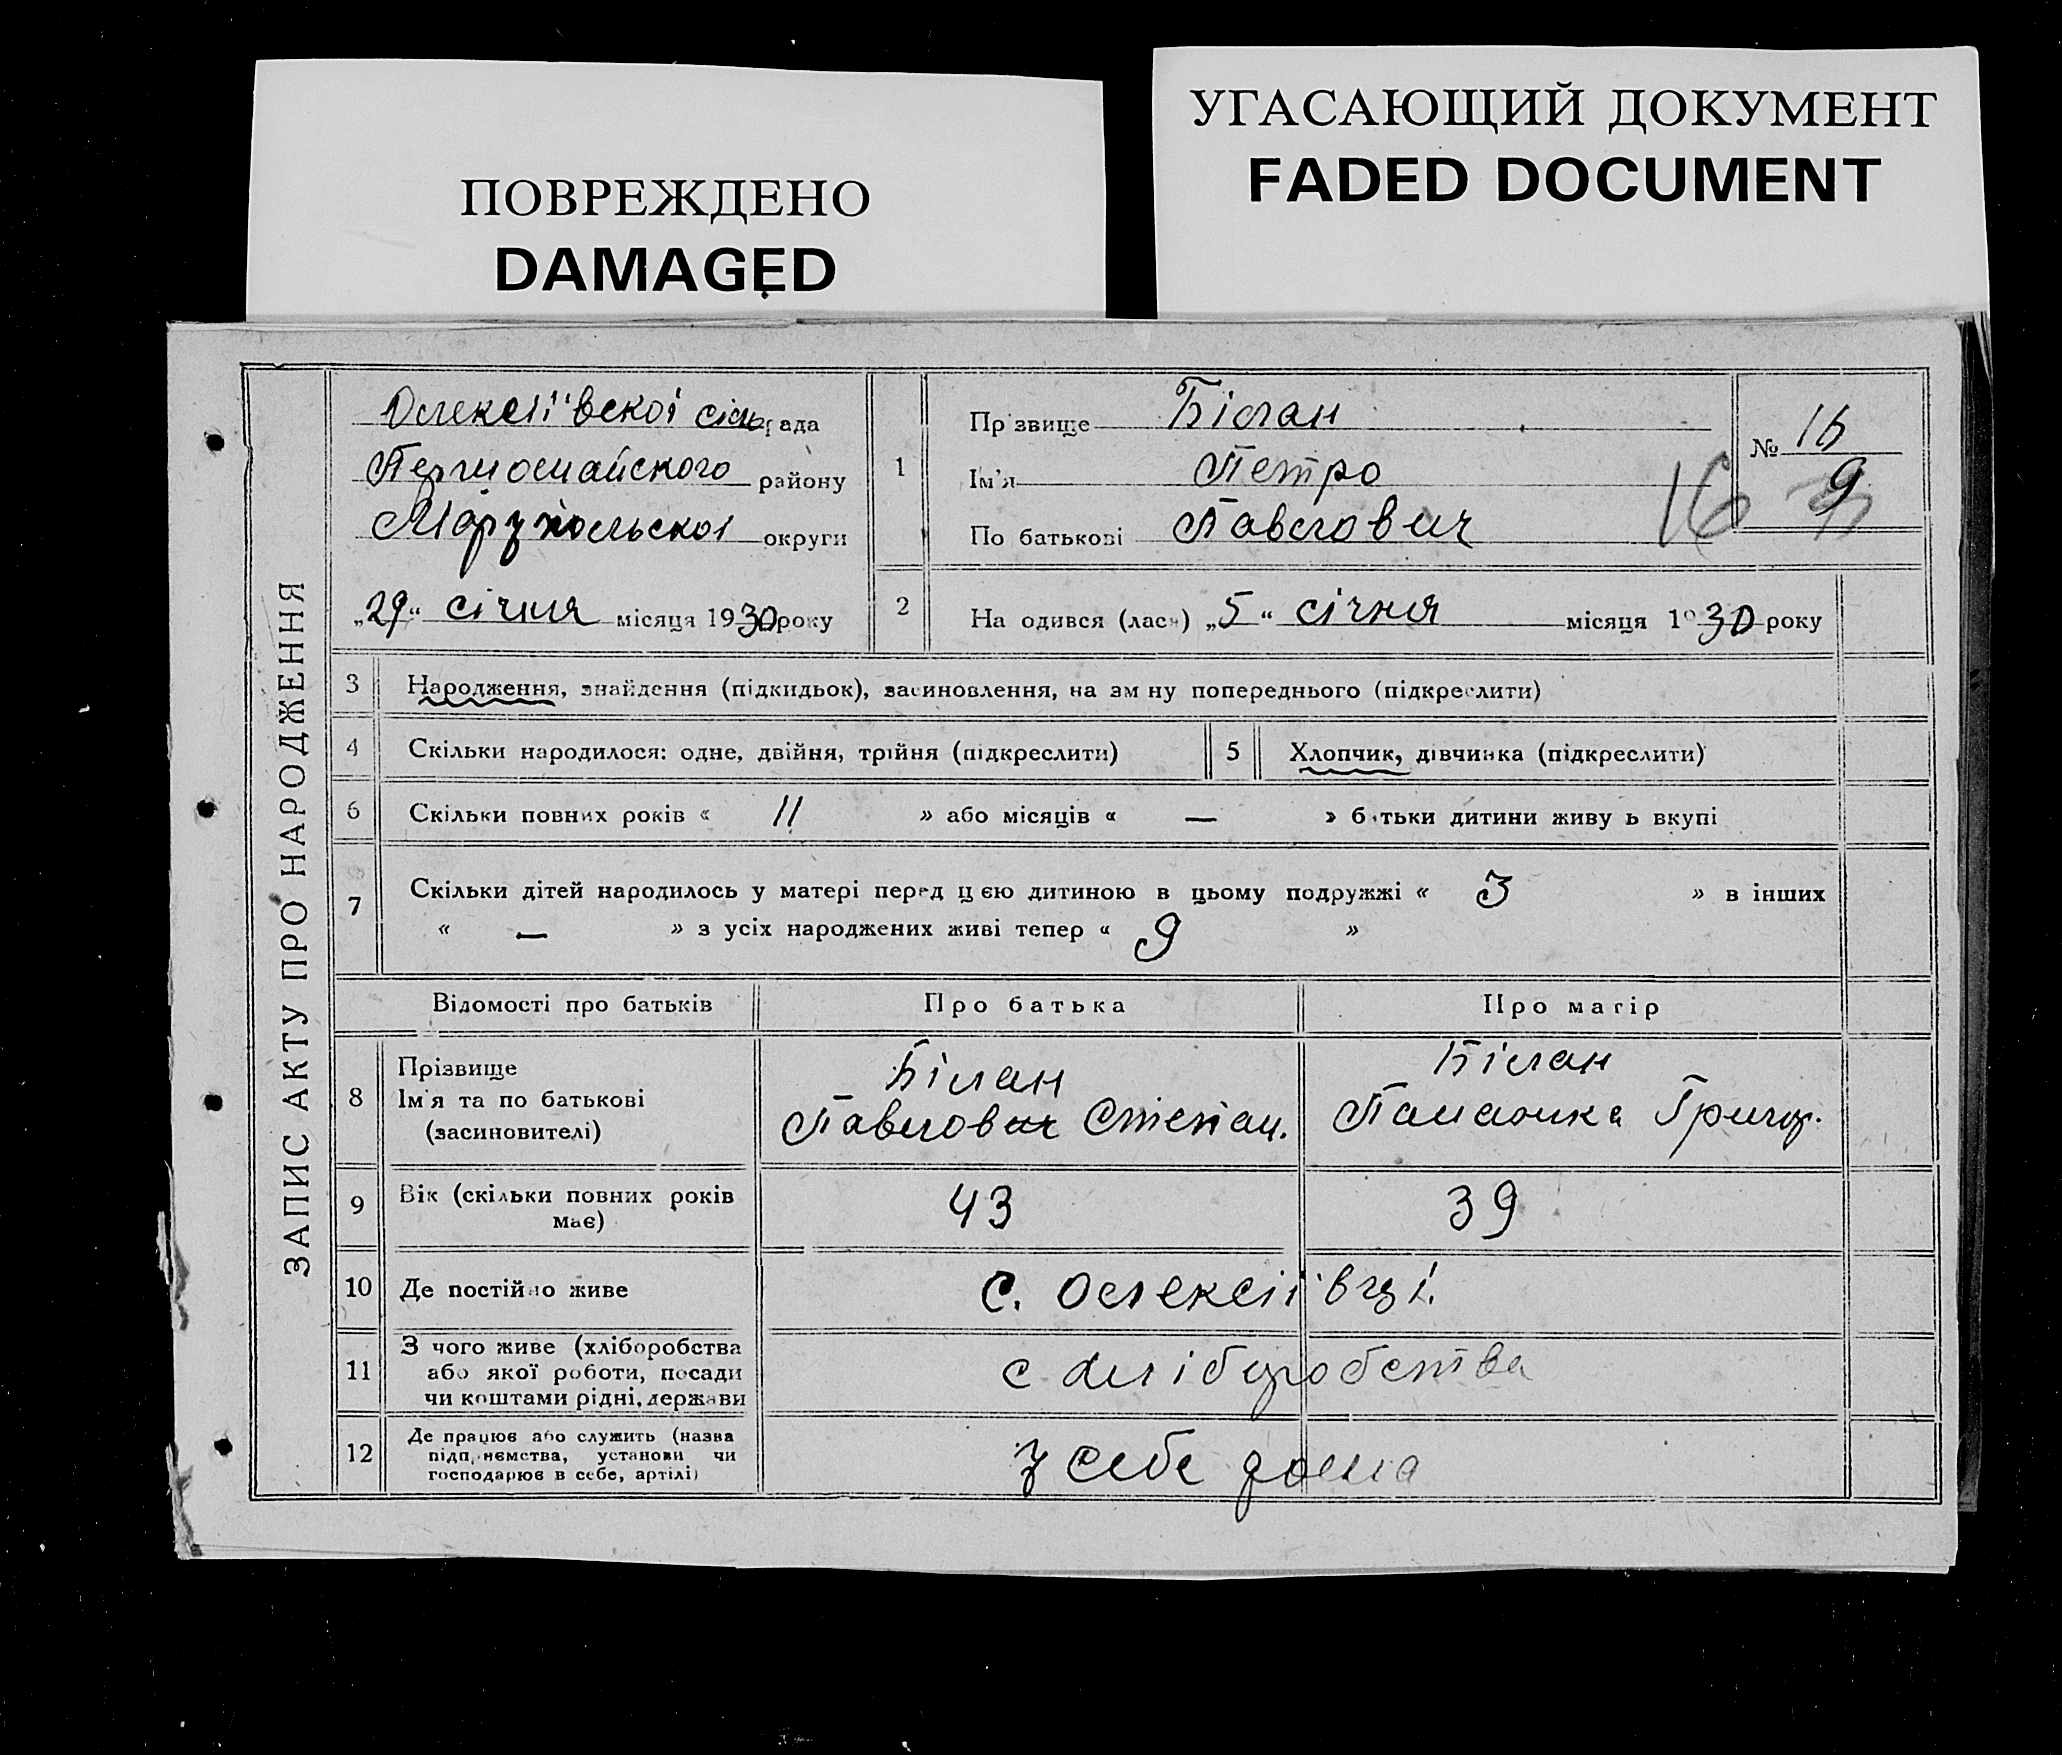 ПОВРЕЖДЕНО
DAMAGED
УГАСАЮЩИЙ ДОКУМЕНТ
FADED DOCUMENT
ЗАПИС АКТУ ПРО НАРОДЖЕННЯ
Олексіївскої сільрада
Першомайского району
Маріюпольскої округи
„29“ січня місяця 1930 року
1
Прізвище Білан
Ім'я Петро
По батькові Павлович
№ 16
9
16
2
Народився (лась) „5“ січня місяця 1930 року
3 Народження, знайдення (підкидьок), засиновлення, на зміну попереднього (підкреслити)
4 Скільки народилося: одне, двійня, трійня (підкреслити) 5 Хлопчик, дівчинка (підкреслити)
6 Скільки повних років « 11 » або місяців « — » батьки дитини живуть вкупі
7 Скільки дітей народилось у матері перед цією дитиною в цьому подружжі « 3 » в інших
« — » з усіх народжених живі тепер « 9 »
Відомості про батьків Про батька Про матір
8 Прізвище
Ім'я та по батькові
(засиновителі)
Білан
Павлович Степан.
Білан
Григор.
9 Вік (скільки повних років
має)
43 39
10 Де постійно живе с. Олексіївці.
11 З чого живе (хліборобства
або якої роботи, посади
чи коштами рідні, держави
с хліборобства
12 Де працює або служить (назва
підприємства, установи чи
господарює в себе, артілі)
у себе дома